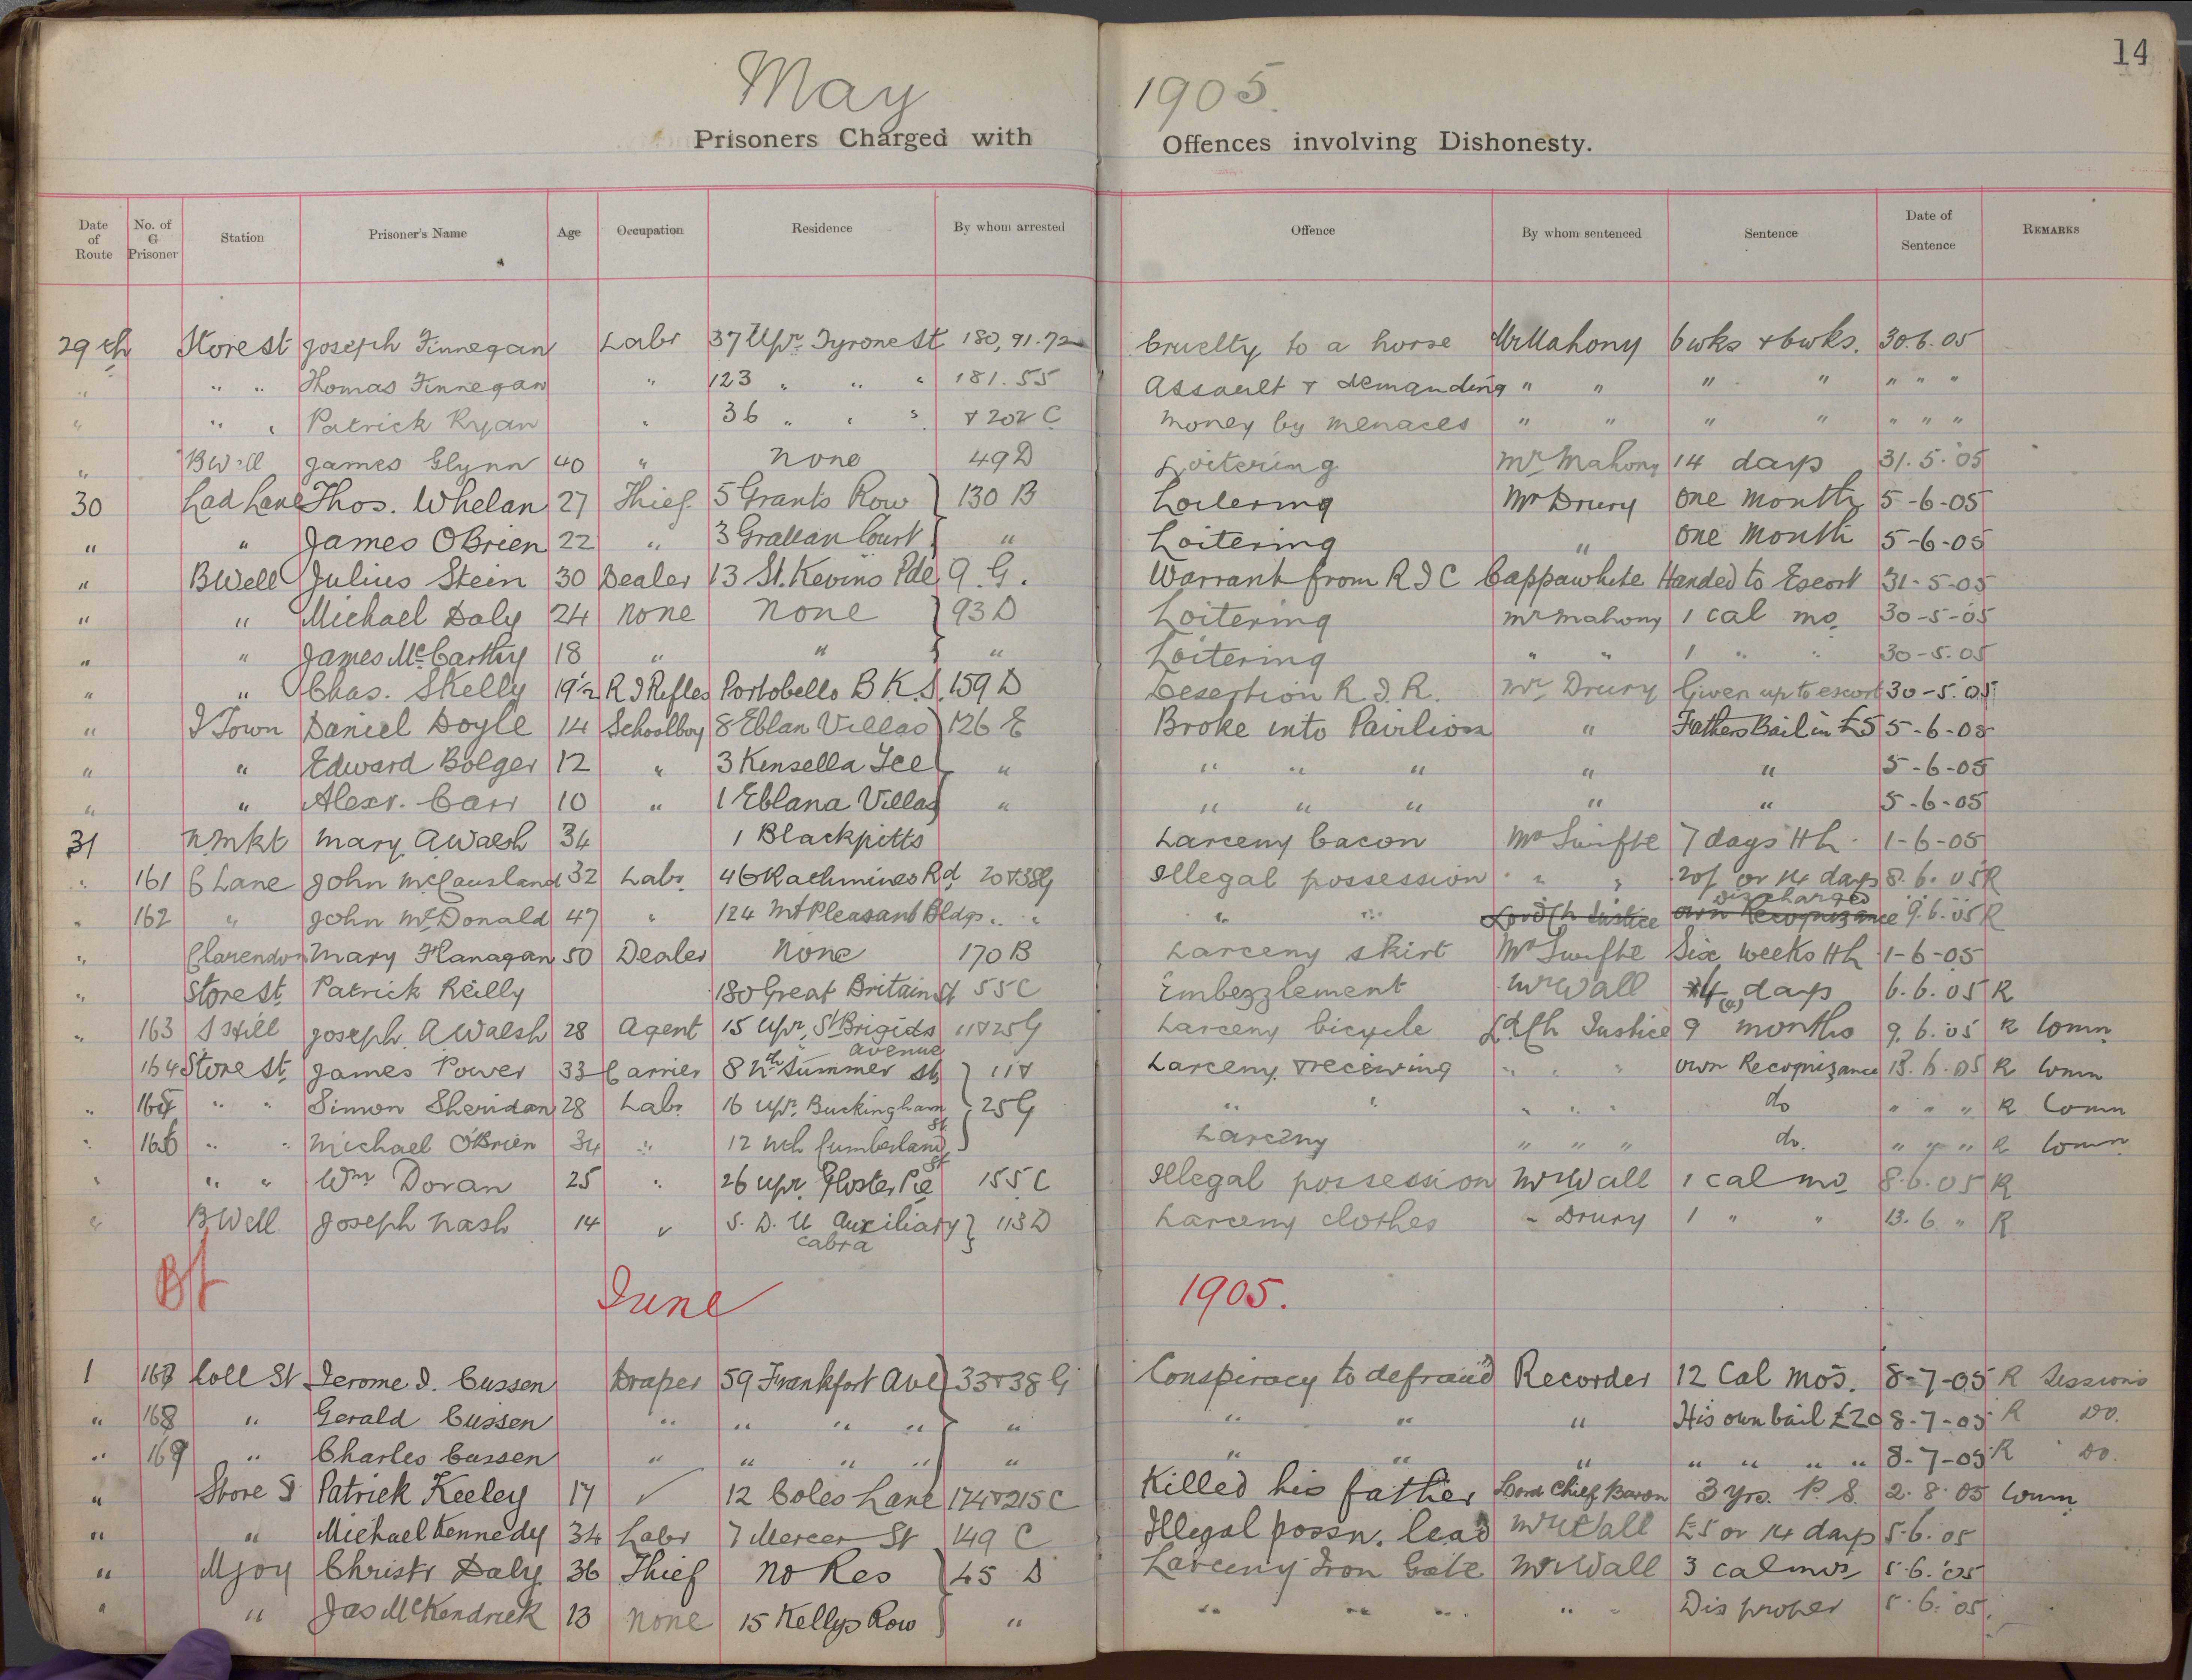 14
May 1905.
Prisoners Charged with Offences involving Dishonesty.
Date of Route No. of G Prisoner Station Prisoner's Name Age Occupation Residence By whom arrested Offence By whom sentenced Sentence Date of Sentence REMARKS
29th Store st Joseph Finnegan Labr 37 Upr Tyrone St 180, 91. 72 Cruelty to a horse Mr Mahony 6 wks & 6 wks. 30. 6. 05
" " " Thomas Finnegan " 123 " " " 181. 55 Assault & demanding " " " " " " "
" " " Patrick Ryan " 36 " " " & 202 C money by menaces " " " " " " "
" BWell James Glynn 40 " none 49 D Loitering Mr Mahony 14 days 31. 5. 05
30 Lad Lane Thos. Whelan 27 Thief 5 Grants Row } 130 B Loitering Mr Drury One Month 5-6-05
" " James OBrien 22 " 3 Grattan Court } " Loitering " One Month 5-6-05
" BWell Julius Stein 30 Dealer 13 St. Kevins Pde 9 G. Warrant from R I C Cappawhite Handed to Escort 31-5-05
" " Michael Daly 24 none none } 93 D Loitering Mr Mahony 1 cal mo. 30-5-05
" " James McCarthy 18 " " } " Loitering " " 1 " " 30-5.05
" " Chas. Skelly 19½ R I Rifles Portobello B K S. 159 D Desertion R. I. R. Mr Drury Given up to escort 30-5.05
" I Town Daniel Doyle 14 Schoolboy 8 Eblan Villas } 126 E Broke into Pavilion " Fathers Bail in £5 5-6-05
" " Edward Bolger 12 " 3 Kinsella Tce } " " " " " " 5-6-05
" " Alexr. Carr 10 " 1 Eblana Villas } " " " " " " 5-6-05
31 N.mkt Mary A Walsh 34 1 Blackpitts Larceny bacon Mr Swifte 7 days Hh. 1-6-05
" 161 C Lane John McCausland 32 Labr. 46 Rathmines Rd. 20 & 38 G Illegal possession " " 20/ or 14 days 8. 6. 05 R
" 162 " John McDonald 47 " 124 Mt Pleasant Bldgs. " " " " Lord Ch Justice own Recognizance discharged 9. 6. 05 R
" Clarendon Mary Flanagan 50 Dealer None 170 B Larceny skirt Mr Swifte Six weeks Hh 1-6-05
" Store St. Patrick Reilly 180 Great Britain St 55 C Embezzlement Mr Wall 14 days 6. 6. 05 R
" 163 S Hill Joseph A Walsh 28 Agent 15 Upr. St Brigids avenue 11 & 25 G Larceny bicycle Ld Ch Justice 9 months 9. 6. 05 R Comn
164 Store st. James Power 33 Carrier 8 Nth Summer St } 11 & Larceny & receiving " " " own Recognizance 13. 6. 05 R Comn
" 165 " " Simon Sheridan 28 Labr. 16 Upr. Buckingham St } 25 G " " " " " do " " " R Comn
" 166 " " Michael O'Brien 34 " 12 Nth Cumberland St } Larceny " " " do. " " " R Comn
" " " Wm Doran 25 " 26 Upr. Gloster Ple 155 C Illegal possession Mr Wall 1 cal mo. 8. 6. 05 R
" BWell Joseph Nash 14 " S. D. U Auxiliary Cabra } 113 D Larceny clothes " Drury 1 " " 13. 6 " R
June 1905.
1 167 Coll St Jerome J. Cussen Draper 59 Frankfort Ave } 33 & 38 G Conspiracy to defraud Recorder 12 Cal Mos. 8-7-05 R Sessions
" 168 " Gerald Cussen " " " " } " " " " His own bail £20 8-7-05 R Do.
" 169 " Charles Cussen " " " " } " " " " " " " " 8-7-05 R Do.
" Store S Patrick Keeley 17 ✓ 12 Coles Lane 174 & 215 C Killed his father Lord Chief Baron 3 yrs. P. S. 2. 8. 05 Comn
" " Michael Kennedy 34 Labr 7 Mercer St 149 C Illegal possn. lead Mr Wall £5 or 14 days 5. 6. 05
" Mjoy Christr Daly 36 Thief No Res } 45 D Larceny Iron Gate Mr Wall 3 cal mos 5. 6. '05
" " Jas McKendrick 13 none 15 Kellys Row } " " " " " " Dis proper 5. 6. '05.